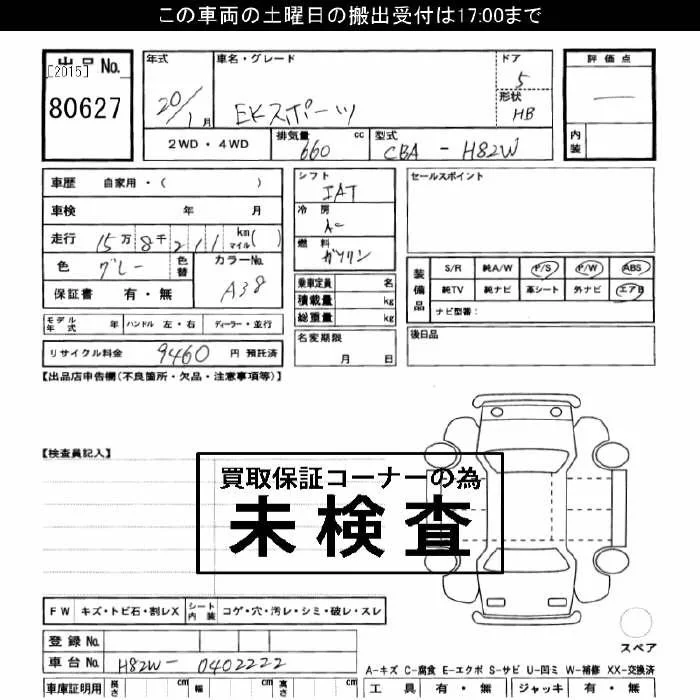 この車両の土曜日の搬出受付は17:00まで
出品No.
[2015]
80627
年式 20/1月
車名・グレード EKスポーツ
ドア 5
形状 HB
評価点 —
内装
2WD・4WD
排気量 660 cc
型式 CBA - H82W
車歴 自家用・( )
車検 年 月
走行 15万8千211 km マイル( )
色 グレー 色替
カラーNo. A38
保証書 有・無
シフト IAT
冷房 AC
燃料 ガソリン
乗車定員 名
積載量 kg
総重量 kg
セールスポイント
装備品
S/R 純A/W P/S P/W ABS
純TV 純ナビ 革シート 外ナビ エアB
ナビ型番:
モデル年式 年 ハンドル 左・右 ディーラー・並行
リサイクル料金 9460 円 預託済
名変期限 月 日
後日品
【出品店申告欄(不良箇所・欠品・注意事項等)】
【検査員記入】
買取保証コーナーの為
未検査
FW キズ・トビ石・割レX シート内装 コゲ・穴・汚レ・シミ・破レ・スレ
登録No.
車台No. H82W- 0402222
スペア
A-キズ C-腐食 E-エクボ S-サビ U-凹ミ W-補修 XX-交換済
車庫証明用 長さ cm 幅 cm 高さ cm
工具 有・無 ジャッキ 有・無